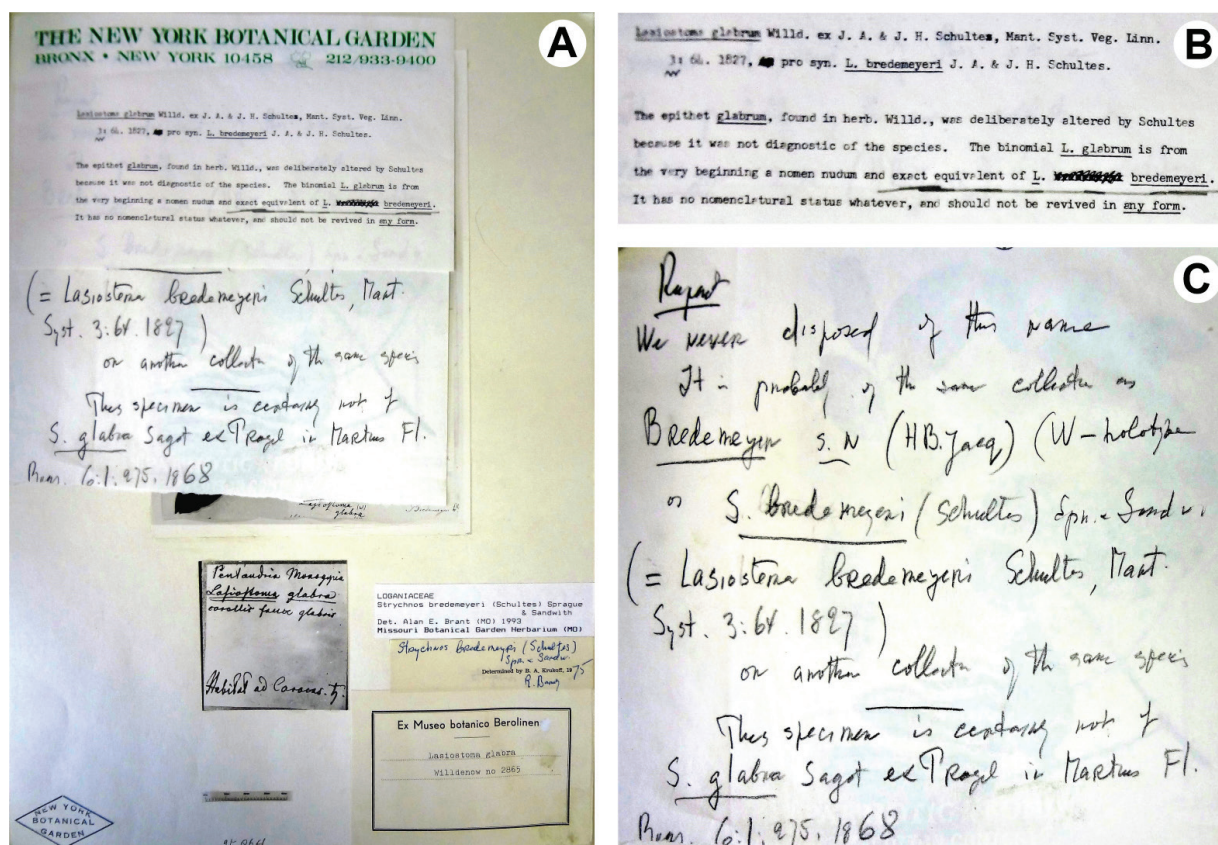 A
THE NEW YORK BOTANICAL GARDEN
BRONX • NEW YORK 10458 212/933-9400
Lasiostoma glabrum Willd. ex J. A. & J. H. Schultes, Mant. Syst. Veg. Linn.
3: 64. 1827, pro syn. L. bredemeyeri J. A. & J. H. Schultes.
The epithet glabrum, found in herb. Willd., was deliberately altered by Schultes
because it was not diagnostic of the species. The binomial L. glabrum is from
the very beginning a nomen nudum and exact equivalent of L. bredemeyeri.
It has no nomenclatural status whatever, and should not be revived in any form.
(= Lasiostoma bredemeyeri Schultes, Mant.
Syst. 3:64. 1827)
or another collectn of the same species
This specimen is certainly not of
S. glabra Sagot ex Progel in Martius Fl.
6:1: 275. 1868
Lasiostoma (W)
glabra
Pentandria Monogynia
Lasiostoma glabra
corollis fauce glabris
Habitat ad Caracas. ♄.
LOGANIACEAE
Strychnos bredemeyeri (Schultes) Sprague
& Sandwith
Det. Alan E. Brant (MO) 1993
Missouri Botanical Garden Herbarium (MO)
Strychnos bredemeyeri (Schultes)
Spr. & Sandw.
Determined by B. A. Krukoff, 1975
Ex Museo botanico Berolinen
Lasiostoma glabra
Willdenow no 2865
NEW YORK
BOTANICAL
GARDEN
B
Lasiostoma glabrum Willd. ex J. A. & J. H. Schultes, Mant. Syst. Veg. Linn.
3: 64. 1827, pro syn. L. bredemeyeri J. A. & J. H. Schultes.
The epithet glabrum, found in herb. Willd., was deliberately altered by Schultes
because it was not diagnostic of the species. The binomial L. glabrum is from
the very beginning a nomen nudum and exact equivalent of L. bredemeyeri.
It has no nomenclatural status whatever, and should not be revived in any form.
C
Rupert
We never disposed of this name
It is probably of the same collectn as
Bredemeyer s.n (HB. Jacq) (W-holotype
of S. Bredemeyeri (Schultes) Spr. & Sandw.
(= Lasiostoma bredemeyeri Schultes, Mant.
Syst. 3:64. 1827)
or another collectn of the same species
This specimen is certainly not of
S. glabra Sagot ex Progel in Martius Fl.
6:1: 275. 1868